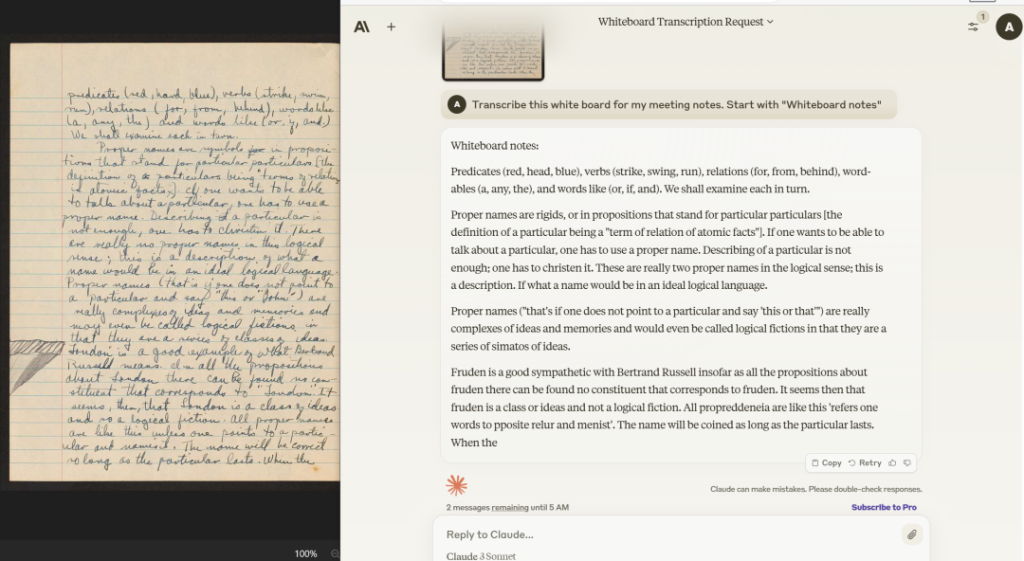 predicates (red, hard, blue), verbs (strike, swim,
run), relations (for, from, behind), words like
(a, any, the) and words like (or, if, and.)
We shall examine each in turn.
Proper names are symbols for in proposi-
tions that stand for particular particulars [the
definition of a particulars being "terms of relations
in atomic facts.] If one wants to be able
to talk about a particular, one has to use a
proper name. Describing of a particular is
not enough, one has to christen it. There
are really no proper names in this logical
sense; this is a description of what a
name would be in an ideal logical language.
Proper names (that is if one does not point to
a particular and say "this or "John") are
really complexes of ideas and memories and
may even be called logical fictions in
that they are a series of classes of ideas.
London is a good example of what Bertrand
Russell means. In all the propositions
about London there can be found no con-
stituent that corresponds to "London". It
seems, then, that London is a class of ideas
and so a logical fiction. All proper names
are like this unless one points to a partic-
ular and names it. The name will be correct
so long as the particular lasts. When the
100%
A\
+
Whiteboard Transcription Request
1
A
A Transcribe this white board for my meeting notes. Start with "Whiteboard notes"
Whiteboard notes:
Predicates (red, head, blue), verbs (strike, swing, run), relations (for, from, behind), word-
ables (a, any, the), and words like (or, if, and). We shall examine each in turn.
Proper names are rigids, or in propositions that stand for particular particulars [the
definition of a particular being a "term of relation of atomic facts"]. If one wants to be able to
talk about a particular, one has to use a proper name. Describing of a particular is not
enough; one has to christen it. These are really two proper names in the logical sense; this is
a description. If what a name would be in an ideal logical language.
Proper names ("that's if one does not point to a particular and say 'this or that'") are really
complexes of ideas and memories and would even be called logical fictions in that they are a
series of simatos of ideas.
Fruden is a good sympathetic with Bertrand Russell insofar as all the propositions about
fruden there can be found no constituent that corresponds to fruden. It seems then that
fruden is a class or ideas and not a logical fiction. All propreddeneia are like this 'refers one
words to pposite relur and menist'. The name will be coined as long as the particular lasts.
When the
Copy Retry
Claude can make mistakes. Please double-check responses.
2 messages remaining until 5 AM
Subscribe to Pro
Reply to Claude...
Claude 3 Sonnet